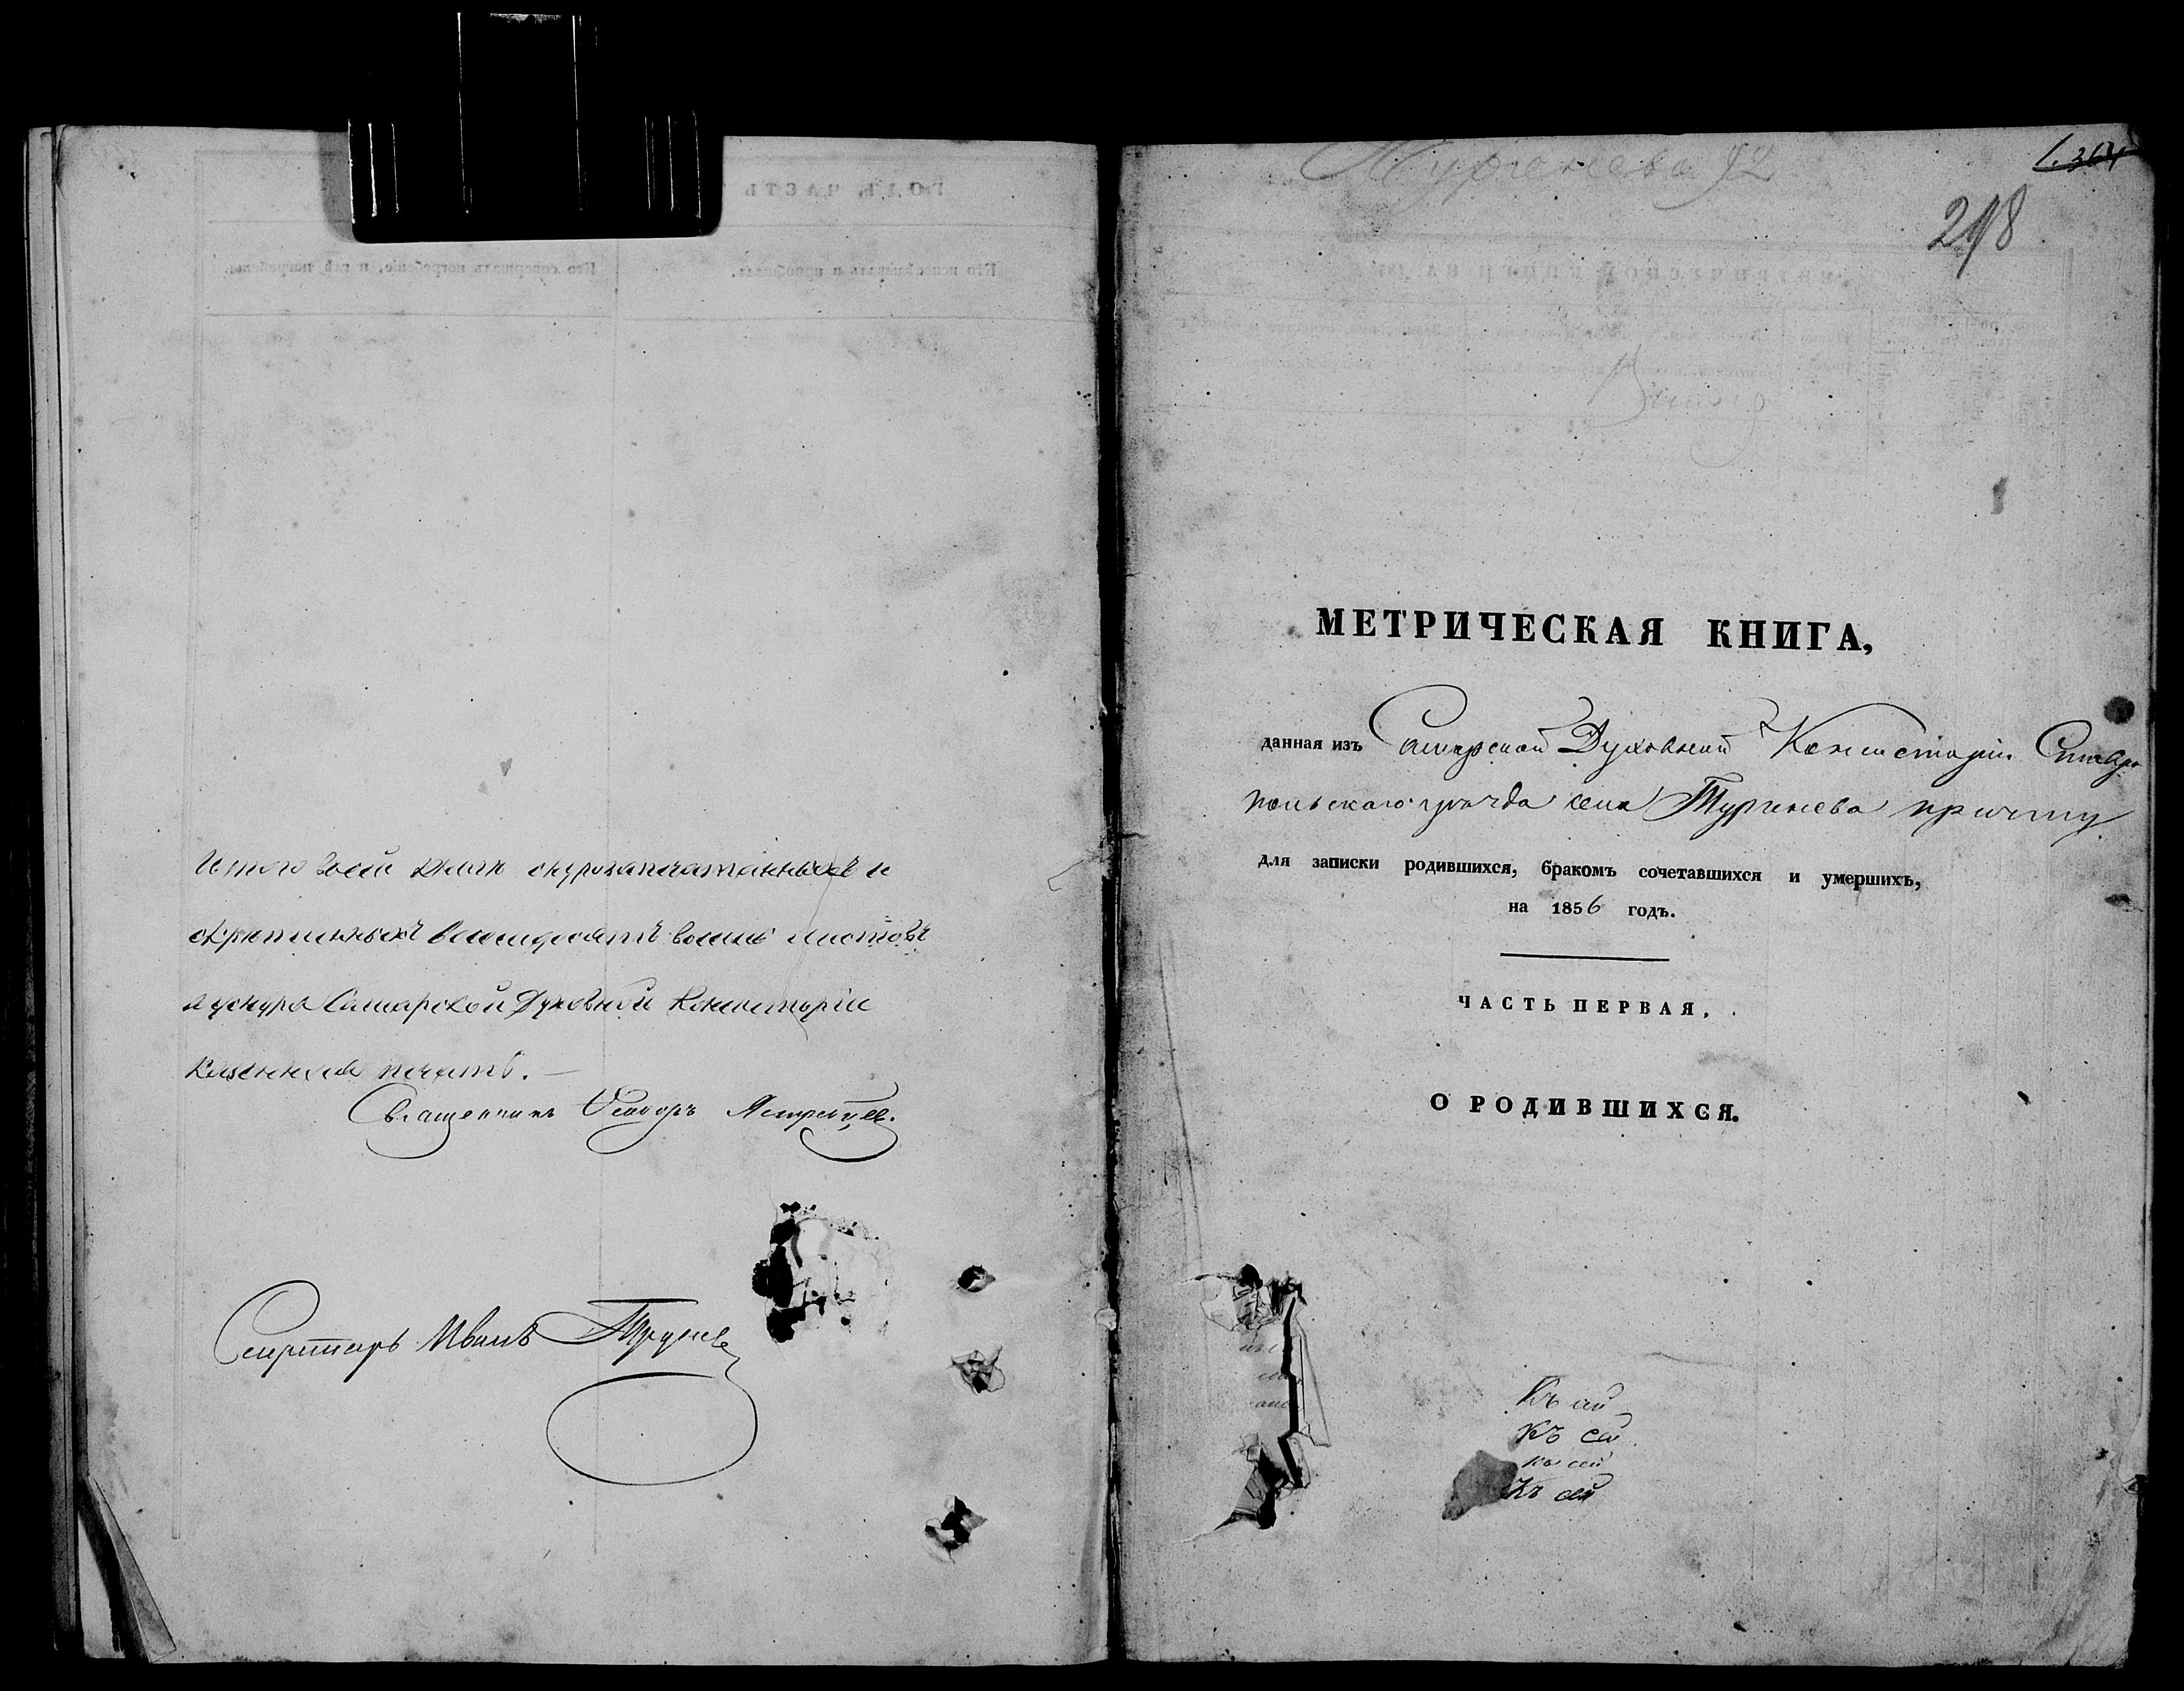 Итого въ сей книгѣ шнурозапечатанныхъ и
скрѣпленныхъ восемдесятъ восемь листовъ
у шнура Самарской Духовной Консисторіи
казенная печать. —
Священникъ Ѳеодоръ Ястребцев.
Секретарь Иванъ
Тургенева 92
1.364
218
МЕТРИЧЕСКАЯ КНИГА,
данная изъ Самарской Духовной Консисторіи Ставро
польскаго уѣзда села Тургенева причту
для записки родившихся, бракомъ сочетавшихся и умершихъ,
на 1856 годъ.
ЧАСТЬ ПЕРВАЯ.
О РОДИВШИХСЯ.
Къ сей
Къ сей
къ сей
Къ сей